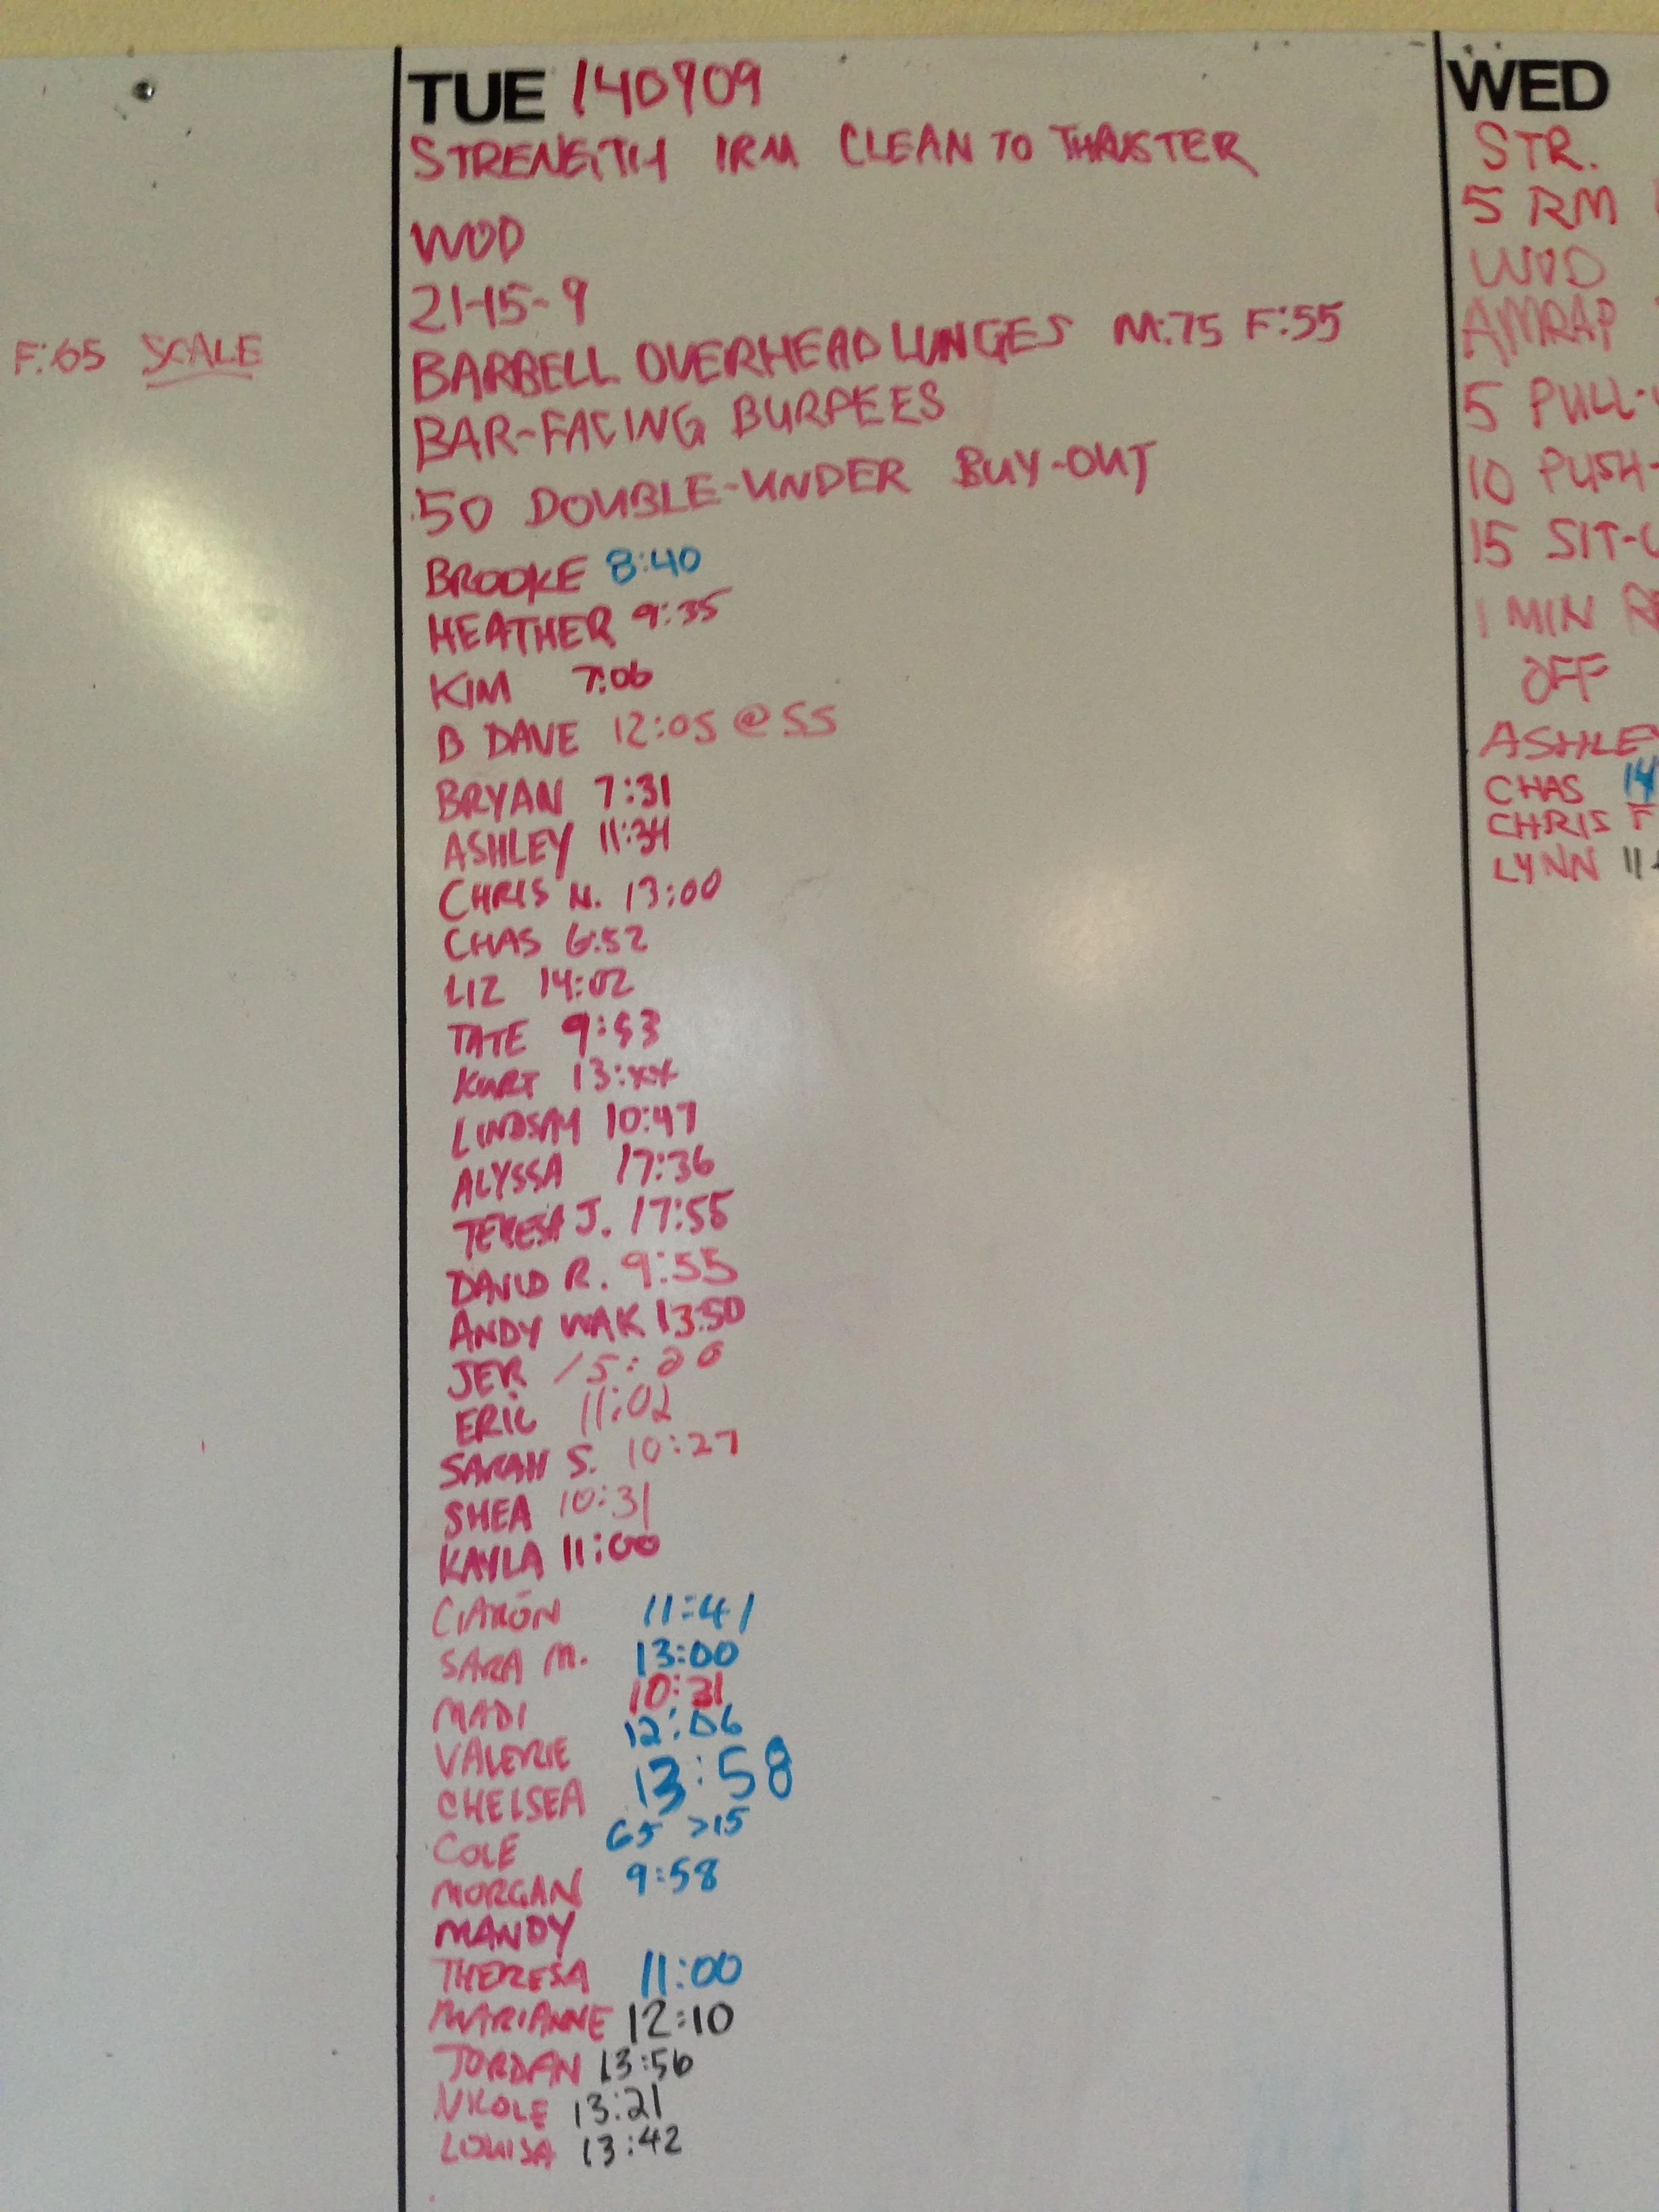 F:65 SCALE
TUE 140909
STRENGTH 1RM CLEAN TO THRUSTER
WOD
21-15-9
BARBELL OVERHEAD LUNGES M:75 F:55
BAR-FACING BURPEES
50 DOUBLE-UNDER BUY-OUT
BROOKE 8:40
HEATHER 9:35
KIM 7:06
B DAVE 12:05 @ 55
BRYAN 7:31
ASHLEY 11:34
CHRIS N. 13:00
CHAS 6:52
LIZ 14:02
TATE 9:53
KURT 13:xx
LINDSAY 10:47
ALYSSA 17:36
TERESA J. 17:55
DAVID R. 9:55
ANDY WAK 13:50
JER 15:20
ERIC 11:02
SARAH S. 10:27
SHEA 10:31
KAYLA 11:00
CIARON 11:41
SARA M. 13:00
MADI 10:31
VALERIE 12:06
CHELSEA 13:58
COLE 65 >15
MORGAN 9:58
MANDY
THERESA 11:00
MARIANNE 12:10
JORDAN 13:56
NICOLE 13:21
LOUISA 13:42
WED
STR.
5 RM
WOD
AMRAP
5 PULL-
10 PUSH-
15 SIT-
1 MIN
OFF
ASHLEY
CHAS 14
CHRIS F
LYNN 11